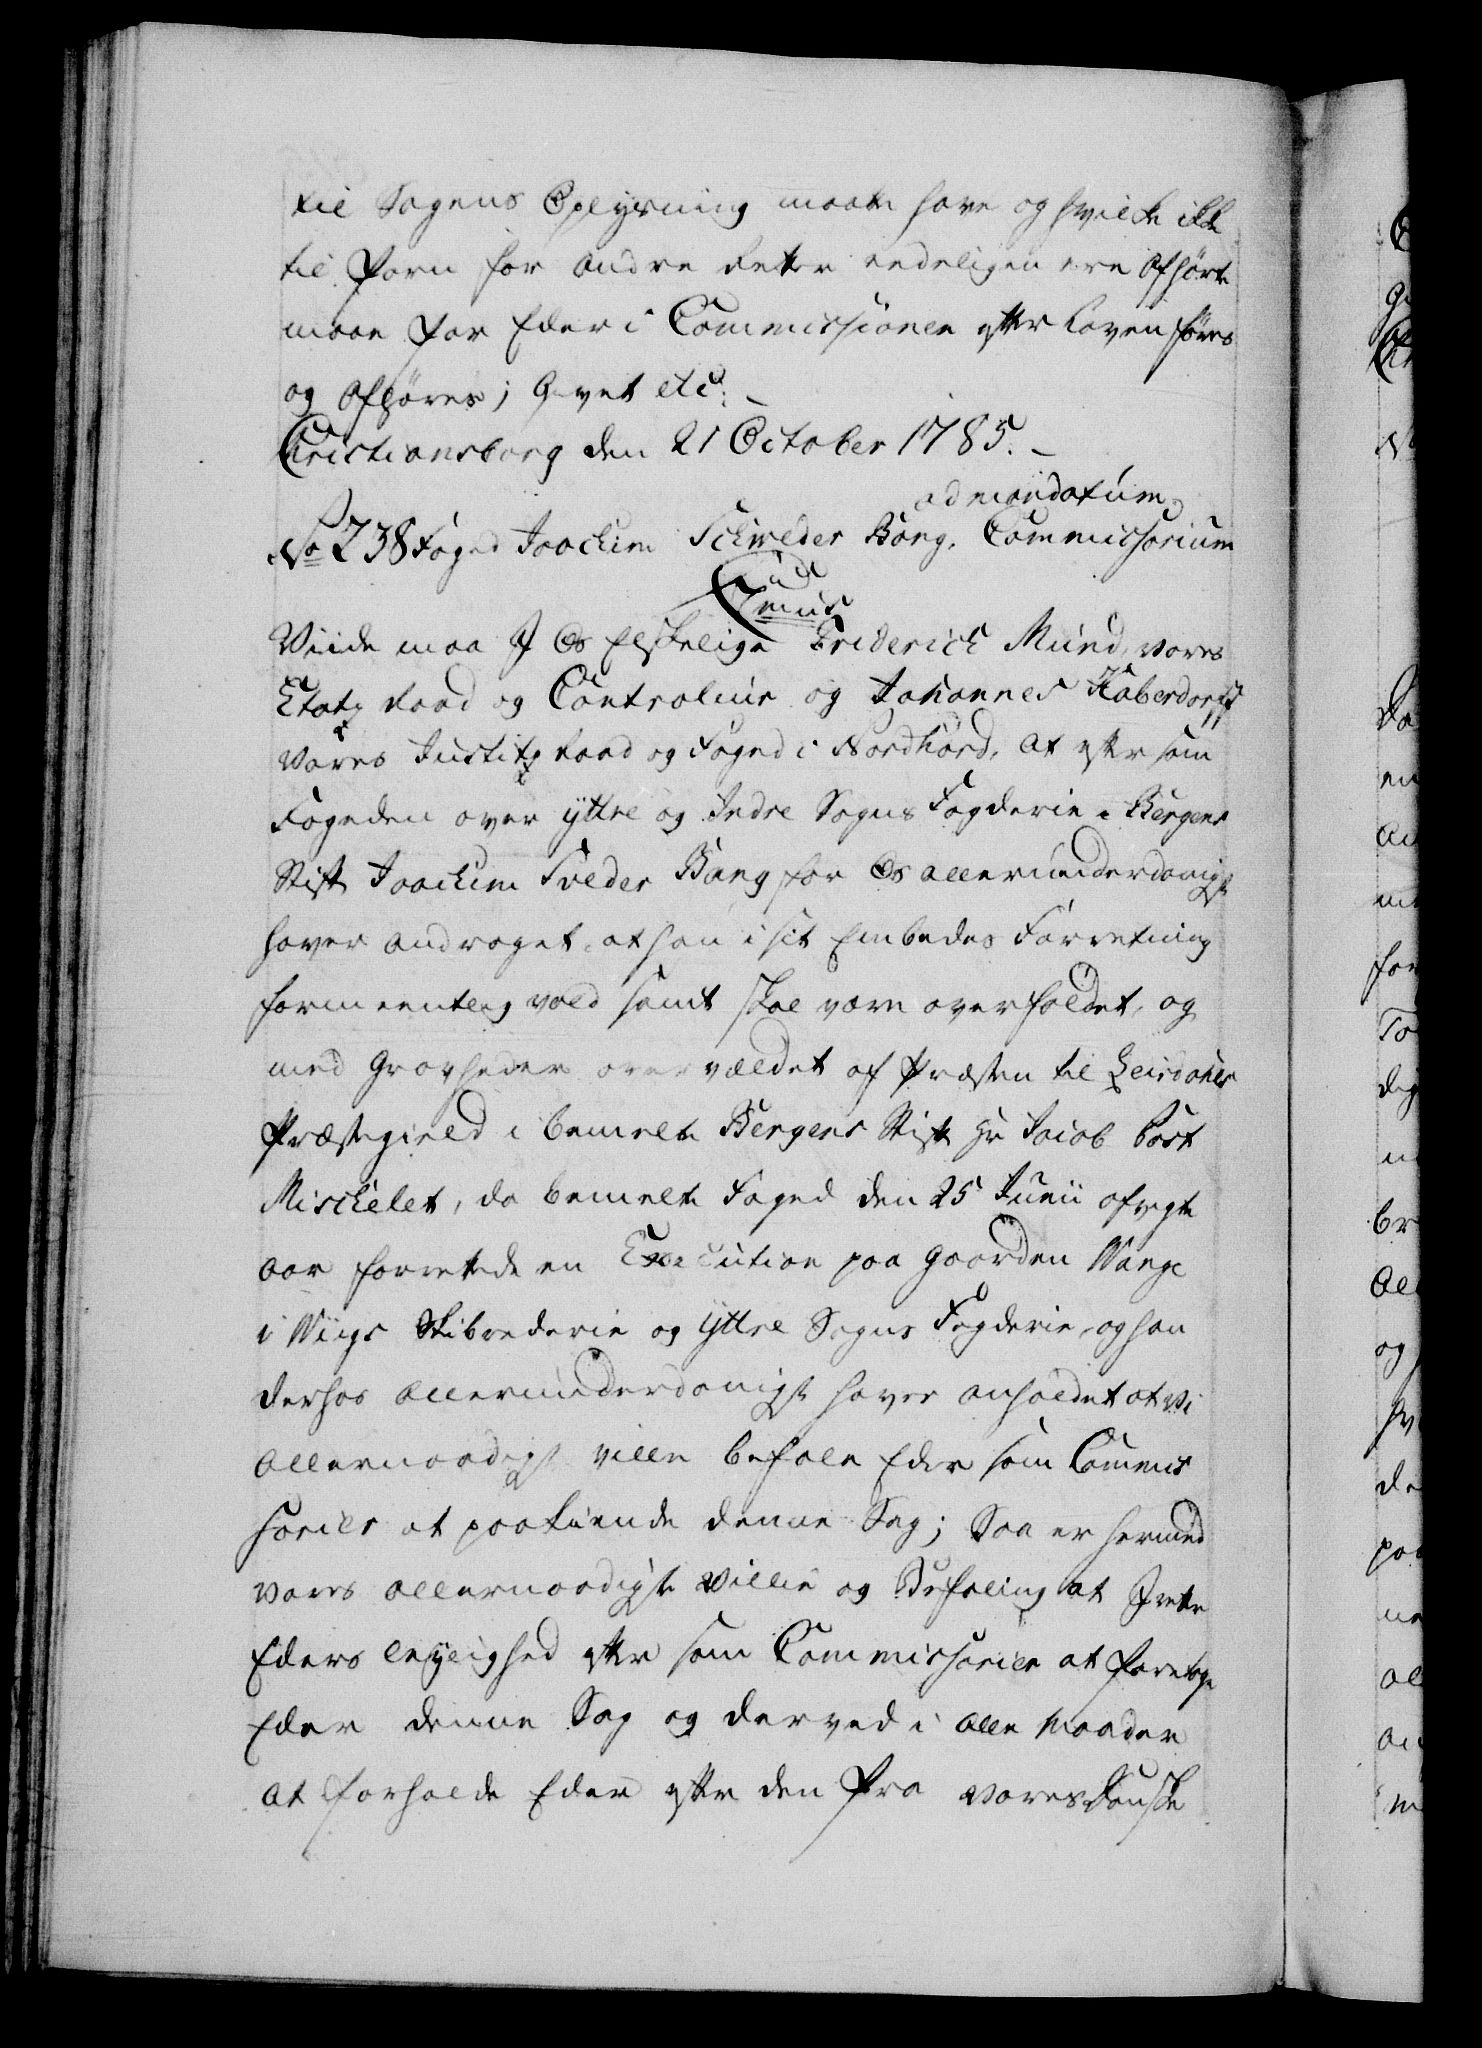 til Sagens Oplysning maatte have og hvilke ikke
til forn for andre Retter endeligen ere afhørte
maae for Eder i Commissionen efter Loven føres
og afhøres; Givet etc:
Christiansborg den 21 October 1785.
ad mandatum
No 238 Foged Joachim Schweder Bang. Commissorium
C 7mus
Viide maa I Os Elskelige Friderich Mund, vores
Etatz Raad og Controleur og Johannes Haberdorff
vores Justitz Raad og Foged i Nordhord, at efter som
Fogeden over yttre og Indre Sogns Fogderie i Bergens
Stift Joachim Sveder Bang for Os allerunderdanigst
haver andraget, at han i sit Embedes Forretning
formeentlig vold somt skal være overfaldet, og
med Grovheder overvældet af Præsten til Leirdahls
Præstegield i bemelte Bergens Stift Hr Jacob Post
Mischelet, da bemelte Foged den 25 Junii afvigte
aar forrettede en Execution paa Gaarden Wange
i Wiigs Skibrederie og yttre Sogns Fogderie, og han
derhos allerunderdanigst haver anholdet at Vi
allernaadigst ville befale Eder som Commis
sarier at paakiende denne Sag; Saa er hermed
vores allernaadigste Villie og Befaling at I rette
Eders leylighed efter som Commissarier at foretage
Eder denne Sag og derved i alle Maader
at forholde Eder efter den fra vores Danske